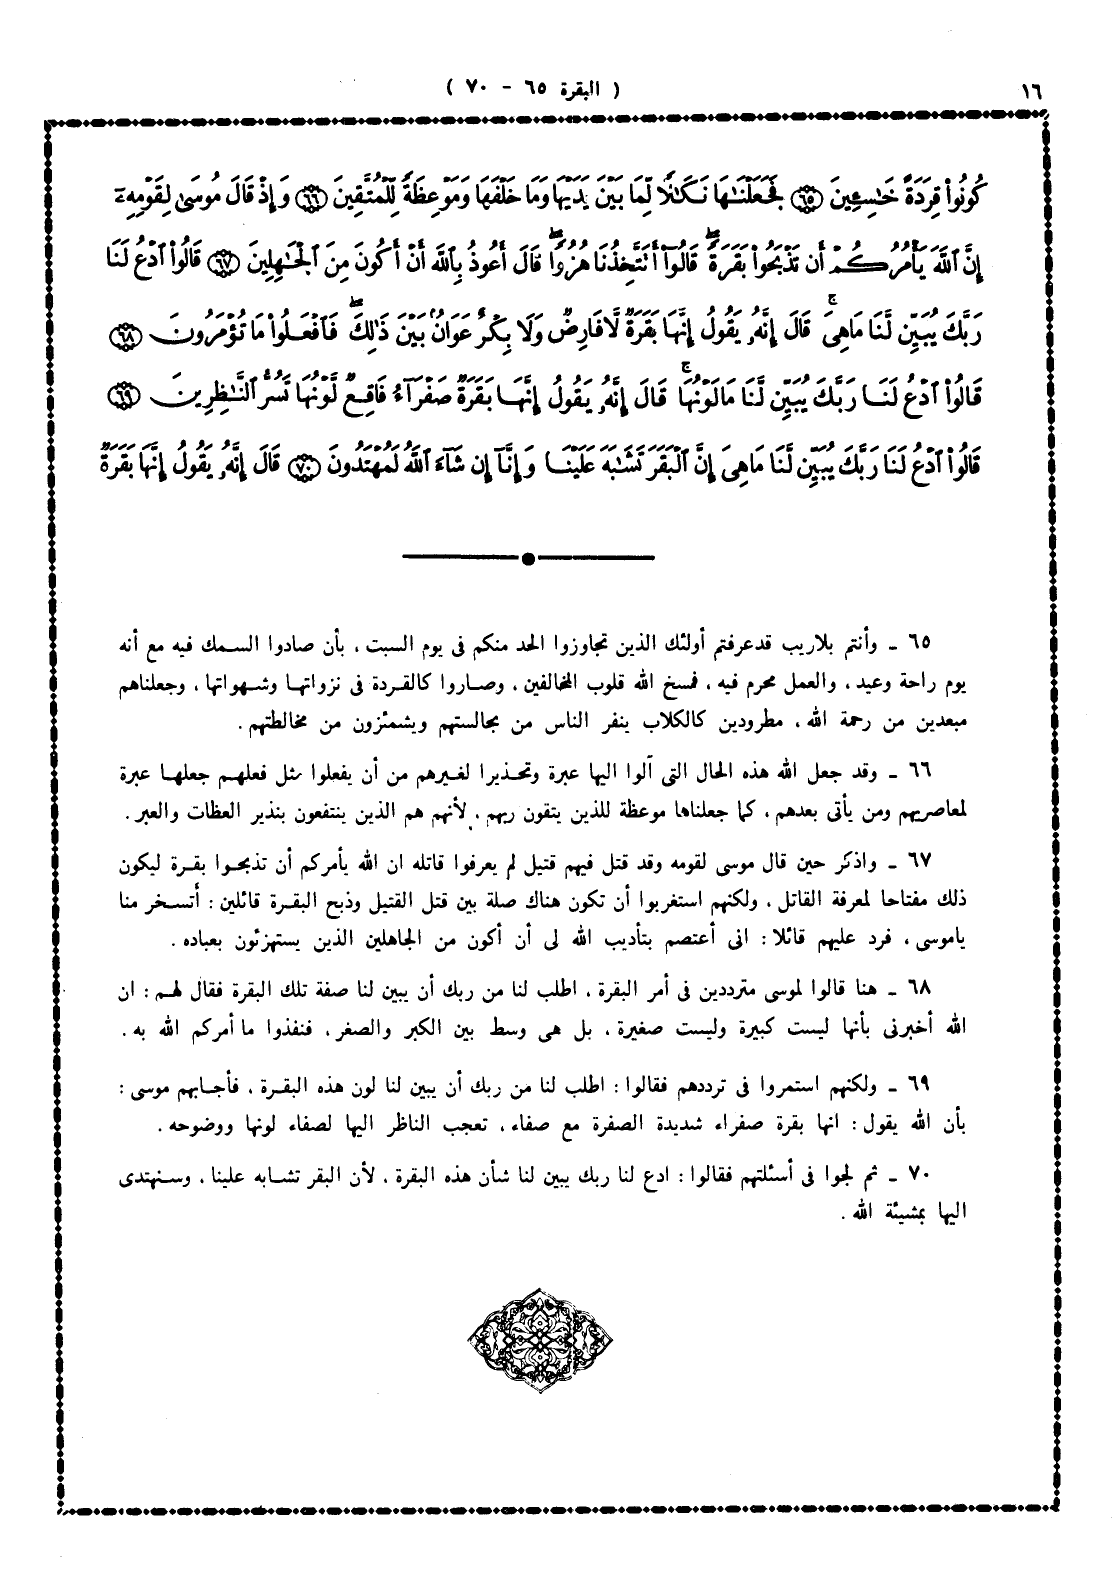 ١٦
( البقرة ٦٥ - ٧٠ )
كُونُوا۟ قِرَدَةً خَٰسِـِٔينَ ﴿٦٥﴾ فَجَعَلْنَٰهَا نَكَٰلًا لِّمَا بَيْنَ يَدَيْهَا وَمَا خَلْفَهَا وَمَوْعِظَةً لِّلْمُتَّقِينَ ﴿٦٦﴾ وَإِذْ قَالَ مُوسَىٰ لِقَوْمِهِۦٓ
إِنَّ ٱللَّهَ يَأْمُرُكُمْ أَن تَذْبَحُوا۟ بَقَرَةً ۖ قَالُوٓا۟ أَتَتَّخِذُنَا هُزُوًا ۖ قَالَ أَعُوذُ بِٱللَّهِ أَنْ أَكُونَ مِنَ ٱلْجَٰهِلِينَ ﴿٦٧﴾ قَالُوا۟ ٱدْعُ لَنَا
رَبَّكَ يُبَيِّن لَّنَا مَا هِىَ ۚ قَالَ إِنَّهُۥ يَقُولُ إِنَّهَا بَقَرَةٌ لَّا فَارِضٌ وَلَا بِكْرٌ عَوَانٌۢ بَيْنَ ذَٰلِكَ ۖ فَٱفْعَلُوا۟ مَا تُؤْمَرُونَ ﴿٦٨﴾
قَالُوا۟ ٱدْعُ لَنَا رَبَّكَ يُبَيِّن لَّنَا مَا لَوْنُهَا ۚ قَالَ إِنَّهُۥ يَقُولُ إِنَّهَا بَقَرَةٌ صَفْرَآءُ فَاقِعٌ لَّوْنُهَا تَسُرُّ ٱلنَّٰظِرِينَ ﴿٦٩﴾
قَالُوا۟ ٱدْعُ لَنَا رَبَّكَ يُبَيِّن لَّنَا مَا هِىَ إِنَّ ٱلْبَقَرَ تَشَٰبَهَ عَلَيْنَا وَإِنَّآ إِن شَآءَ ٱللَّهُ لَمُهْتَدُونَ ﴿٧٠﴾ قَالَ إِنَّهُۥ يَقُولُ إِنَّهَا بَقَرَةٌ
٦٥ ـ وأنتم بلاريب قدعرفتم أولئك الذين تجاوزوا الحد منكم فى يوم السبت ، بأن صادوا السمك فيه مع أنه
يوم راحة وعيد ، والعمل محرم فيه ، فمسخ الله قلوب المخالفين ، وصاروا كالقردة فى نزواتها وشهواتها ، وجعلناهم
مبعدين من رحمة الله ، مطرودين كالكلاب ينفر الناس من مجالستهم ويشمئزون من مخالطتهم .
٦٦ ـ وقد جعل الله هذه الحال التى آلوا اليها عبرة وتحذيرا لغيرهم من أن يفعلوا مثل فعلهم جعلها عبرة
لمعاصريهم ومن يأتى بعدهم ، كما جعلناها موعظة للذين يتقون ربهم ، لأنهم هم الذين ينتفعون بنذير العظات والعبر .
٦٧ ـ واذكر حين قال موسى لقومه وقد قتل فيهم قتيل لم يعرفوا قاتله ان الله يأمركم أن تذبحوا بقرة ليكون
ذلك مفتاحا لمعرفة القاتل ، ولكنهم استغربوا أن تكون هناك صلة بين قتل القتيل وذبح البقرة قائلين : أتسخر منا
ياموسى ، فرد عليهم قائلا : انى أعتصم بتأديب الله لى أن أكون من الجاهلين الذين يستهزئون بعباده .
٦٨ ـ هنا قالوا لموسى مترددين فى أمر البقرة ، اطلب لنا من ربك أن يبين لنا صفة تلك البقرة فقال لهم : ان
الله أخبرنى بأنها ليست كبيرة وليست صغيرة ، بل هى وسط بين الكبر والصغر ، فنفذوا ما أمركم الله به .
٦٩ ـ ولكنهم استمروا فى ترددهم فقالوا : اطلب لنا من ربك أن يبين لنا لون هذه البقرة ، فأجابهم موسى :
بأن الله يقول : انها بقرة صفراء شديدة الصفرة مع صفاء ، تعجب الناظر اليها لصفاء لونها ووضوحه .
٧٠ ـ ثم لجوا فى أسئلتهم فقالوا : ادع لنا ربك يبين لنا شأن هذه البقرة ، لأن البقر تشابه علينا ، وسنهتدى
اليها بمشيئة الله .